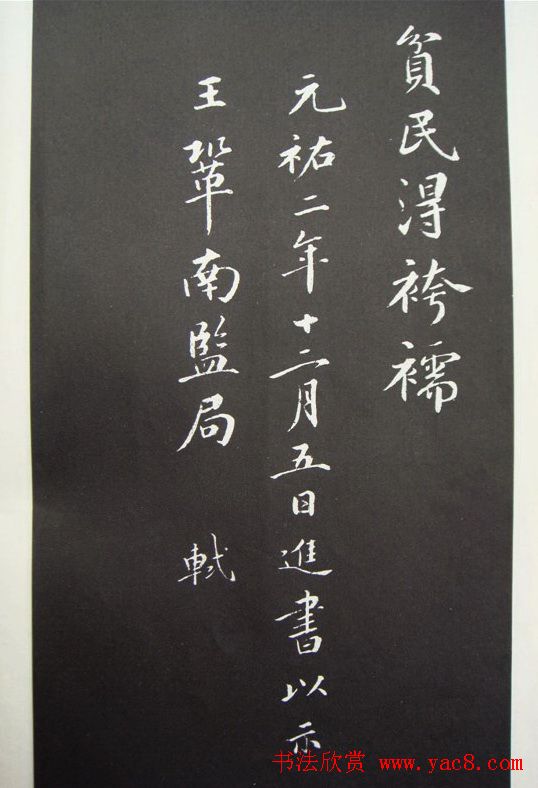 貧民淂袴襦
元祐二年十二月五日進書以示
王鞏南監局 軾
书法欣赏 www.yac8.com